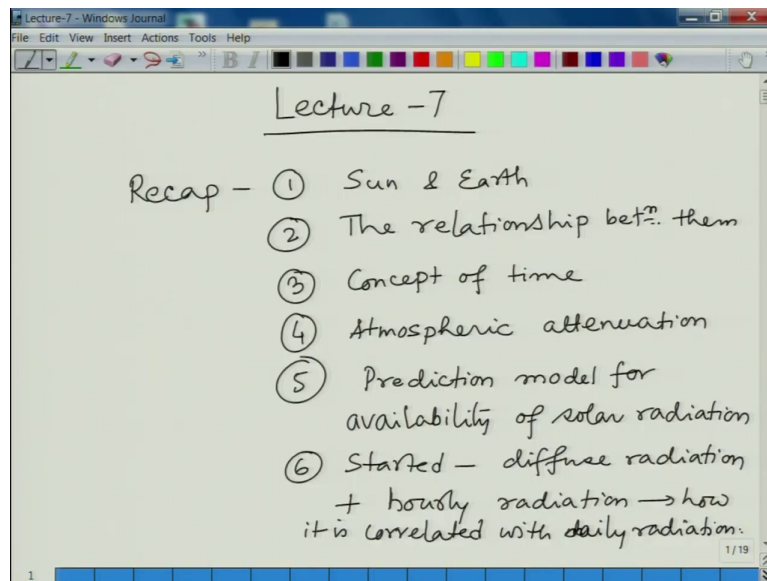 Lecture-7 - Windows Journal
File Edit View Insert Actions Tools Help
B I
Lecture -7
Recap - ① Sun & Earth
② The relationship betⁿ. them
③ Concept of time
④ Atmospheric attenuation
⑤ Prediction model for
availability of solar radiation
⑥ Started - diffuse radiation
+ hourly radiation → how
it is correlated with daily radiation.
1/19
1